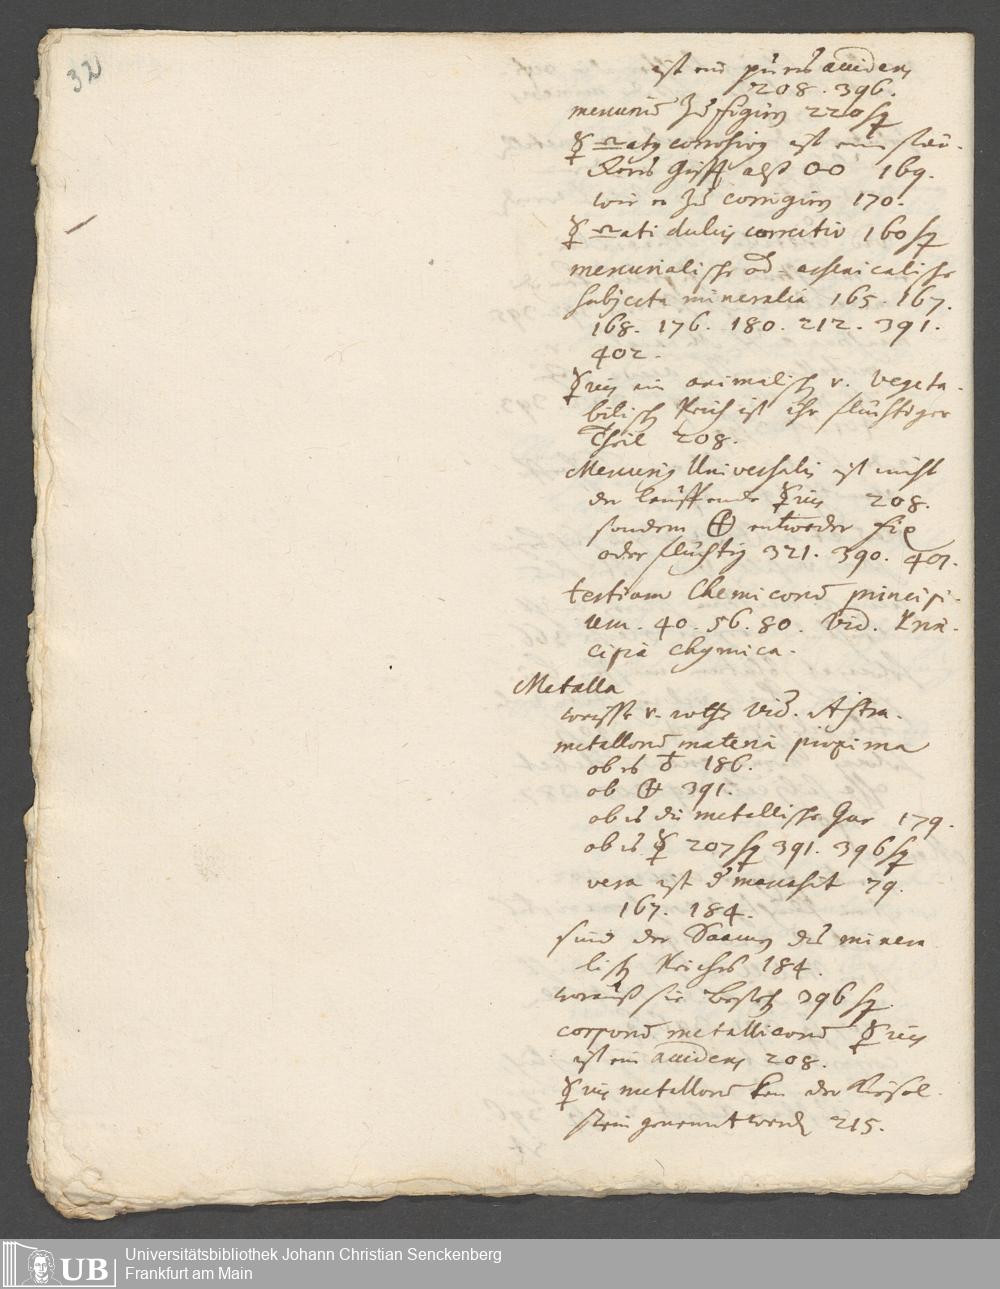 32
ist ein pures accidens
208. 396.
mercurium zu figirn 220 sq
☿ corrosivus ist ein stär-
kers Gifft alß 169.
wie er zu corrigirn 170.
☿ dulcis correctio 160 sq
mercurialische od. arsenicalische
subjecta mineralia 165. 167.
168. 176. 180. 212. 391.
402.
☿rius im animalisch v. vegeta-
bilisch Reich ist ihr flüchtiger
Theil 208.
Mercurius Universalis ist nicht
der lauffende ☿rius 208.
sondern entweder fix
oder flüchtig 321. 390. 401.
tertium Chemicorum princip-
ium. 40. 56. 80. Vid. Prin-
cipia chymica.
Metalla
weisse v. rothe Vid. Astra.
metallorum materia proxima
ob es ♁ 186.
ob 391.
ob es die metallische Gur 179.
ob es ☿ 207 sq 391. 396 sq
vera ist 79.
167. 184.
sind der Saamen des minera
lisch Reiches 184.
worauß sie besteh 396 sq.
corporum metallicorum ☿rius
ist ein accidens 208.
☿rius metallorum kan der Kißel-
stein genennt werden 215.
UB
Universitätsbibliothek Johann Christian Senckenberg
Frankfurt am Main